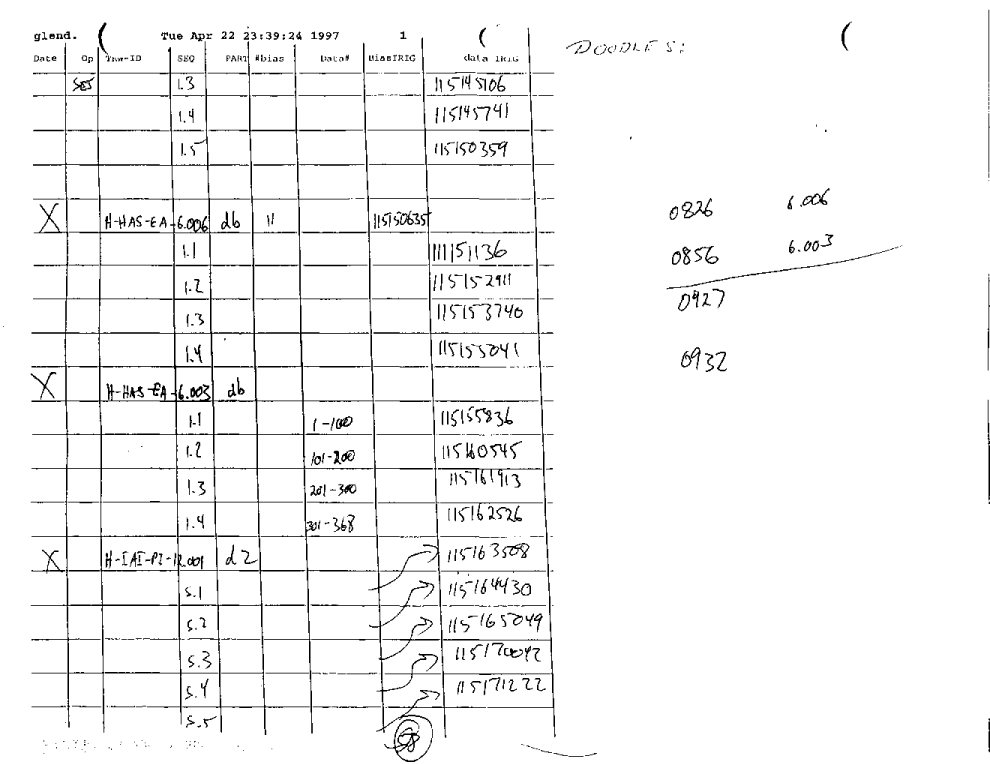 glend. Tue Apr 22 23:39:24 1997 1
DOODLES:
Date Op Tnw-ID SEQ PART #bias Data# BiasIRIG data IRIG
1.3 115145106
1.4 115145741
1.5 115150359
X H-HAS-EA-6.006 db 11 115150635
0826 6.006
1.1 111151136
0856 6.003
1.2 115152911
0927
1.3 115153740
1.4 115155041
0932
X H-HAS-EA-6.003 db
1.1 1-100 115155836
1.2 101-200 115160545
1.3 201-300 115161913
1.4 301-368 115162526
X H-IAI-PI-12.001 d2 115163508
S.1 115164430
S.2 115165049
S.3 115170042
S.4 115171222
S.5